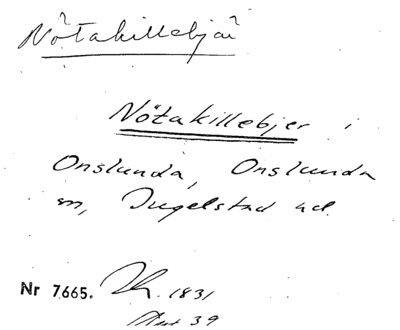 Nötakillebjär
Nötakillebjer i
Onslunda, Onslunda
sn, Ingelstad hd.
Nr 7665. 1831
39